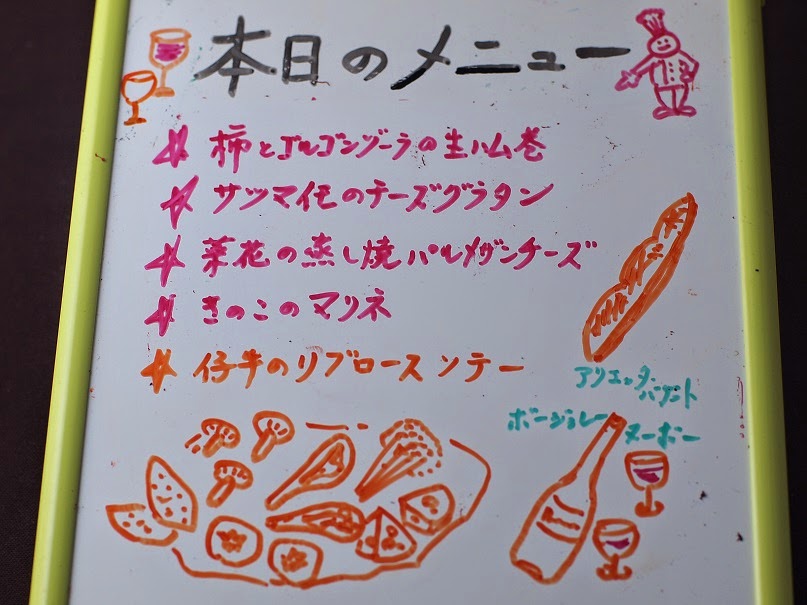 本日のメニュー
柿とゴルゴンゾーラの生ハム巻
サツマイモのチーズグラタン
菜花の蒸し焼パルメザンチーズ
きのこのマリネ
仔牛のリブロースソテー
アリエッタバゲット
ボージョレーヌーボー